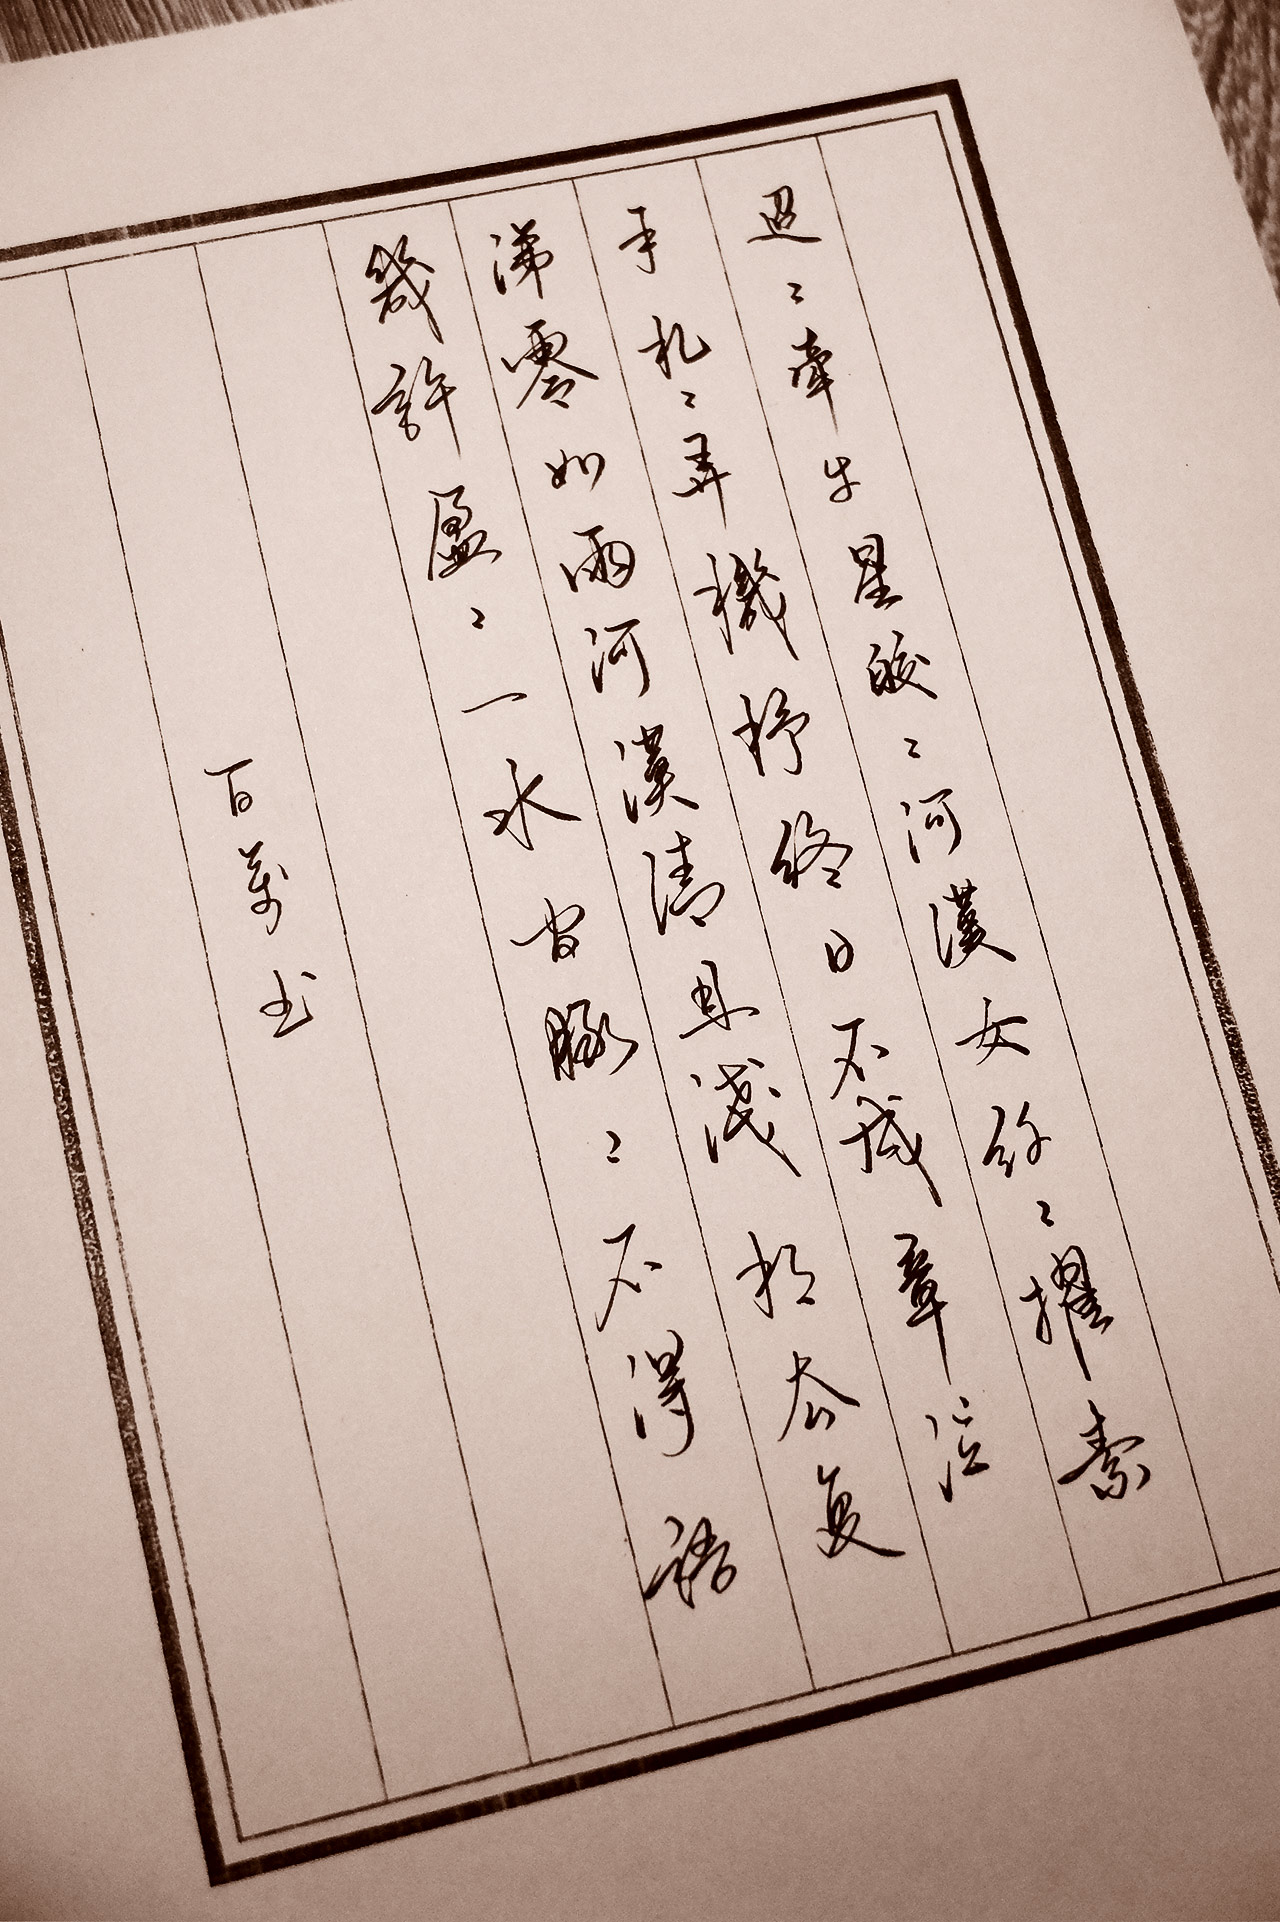 迢〻牽牛星皎〻河漢女纖〻擢素
手札〻弄機杼終日不成章泣
涕零如雨河漢清且淺相去复
幾許盈〻一水間脈〻不得語
百萬書